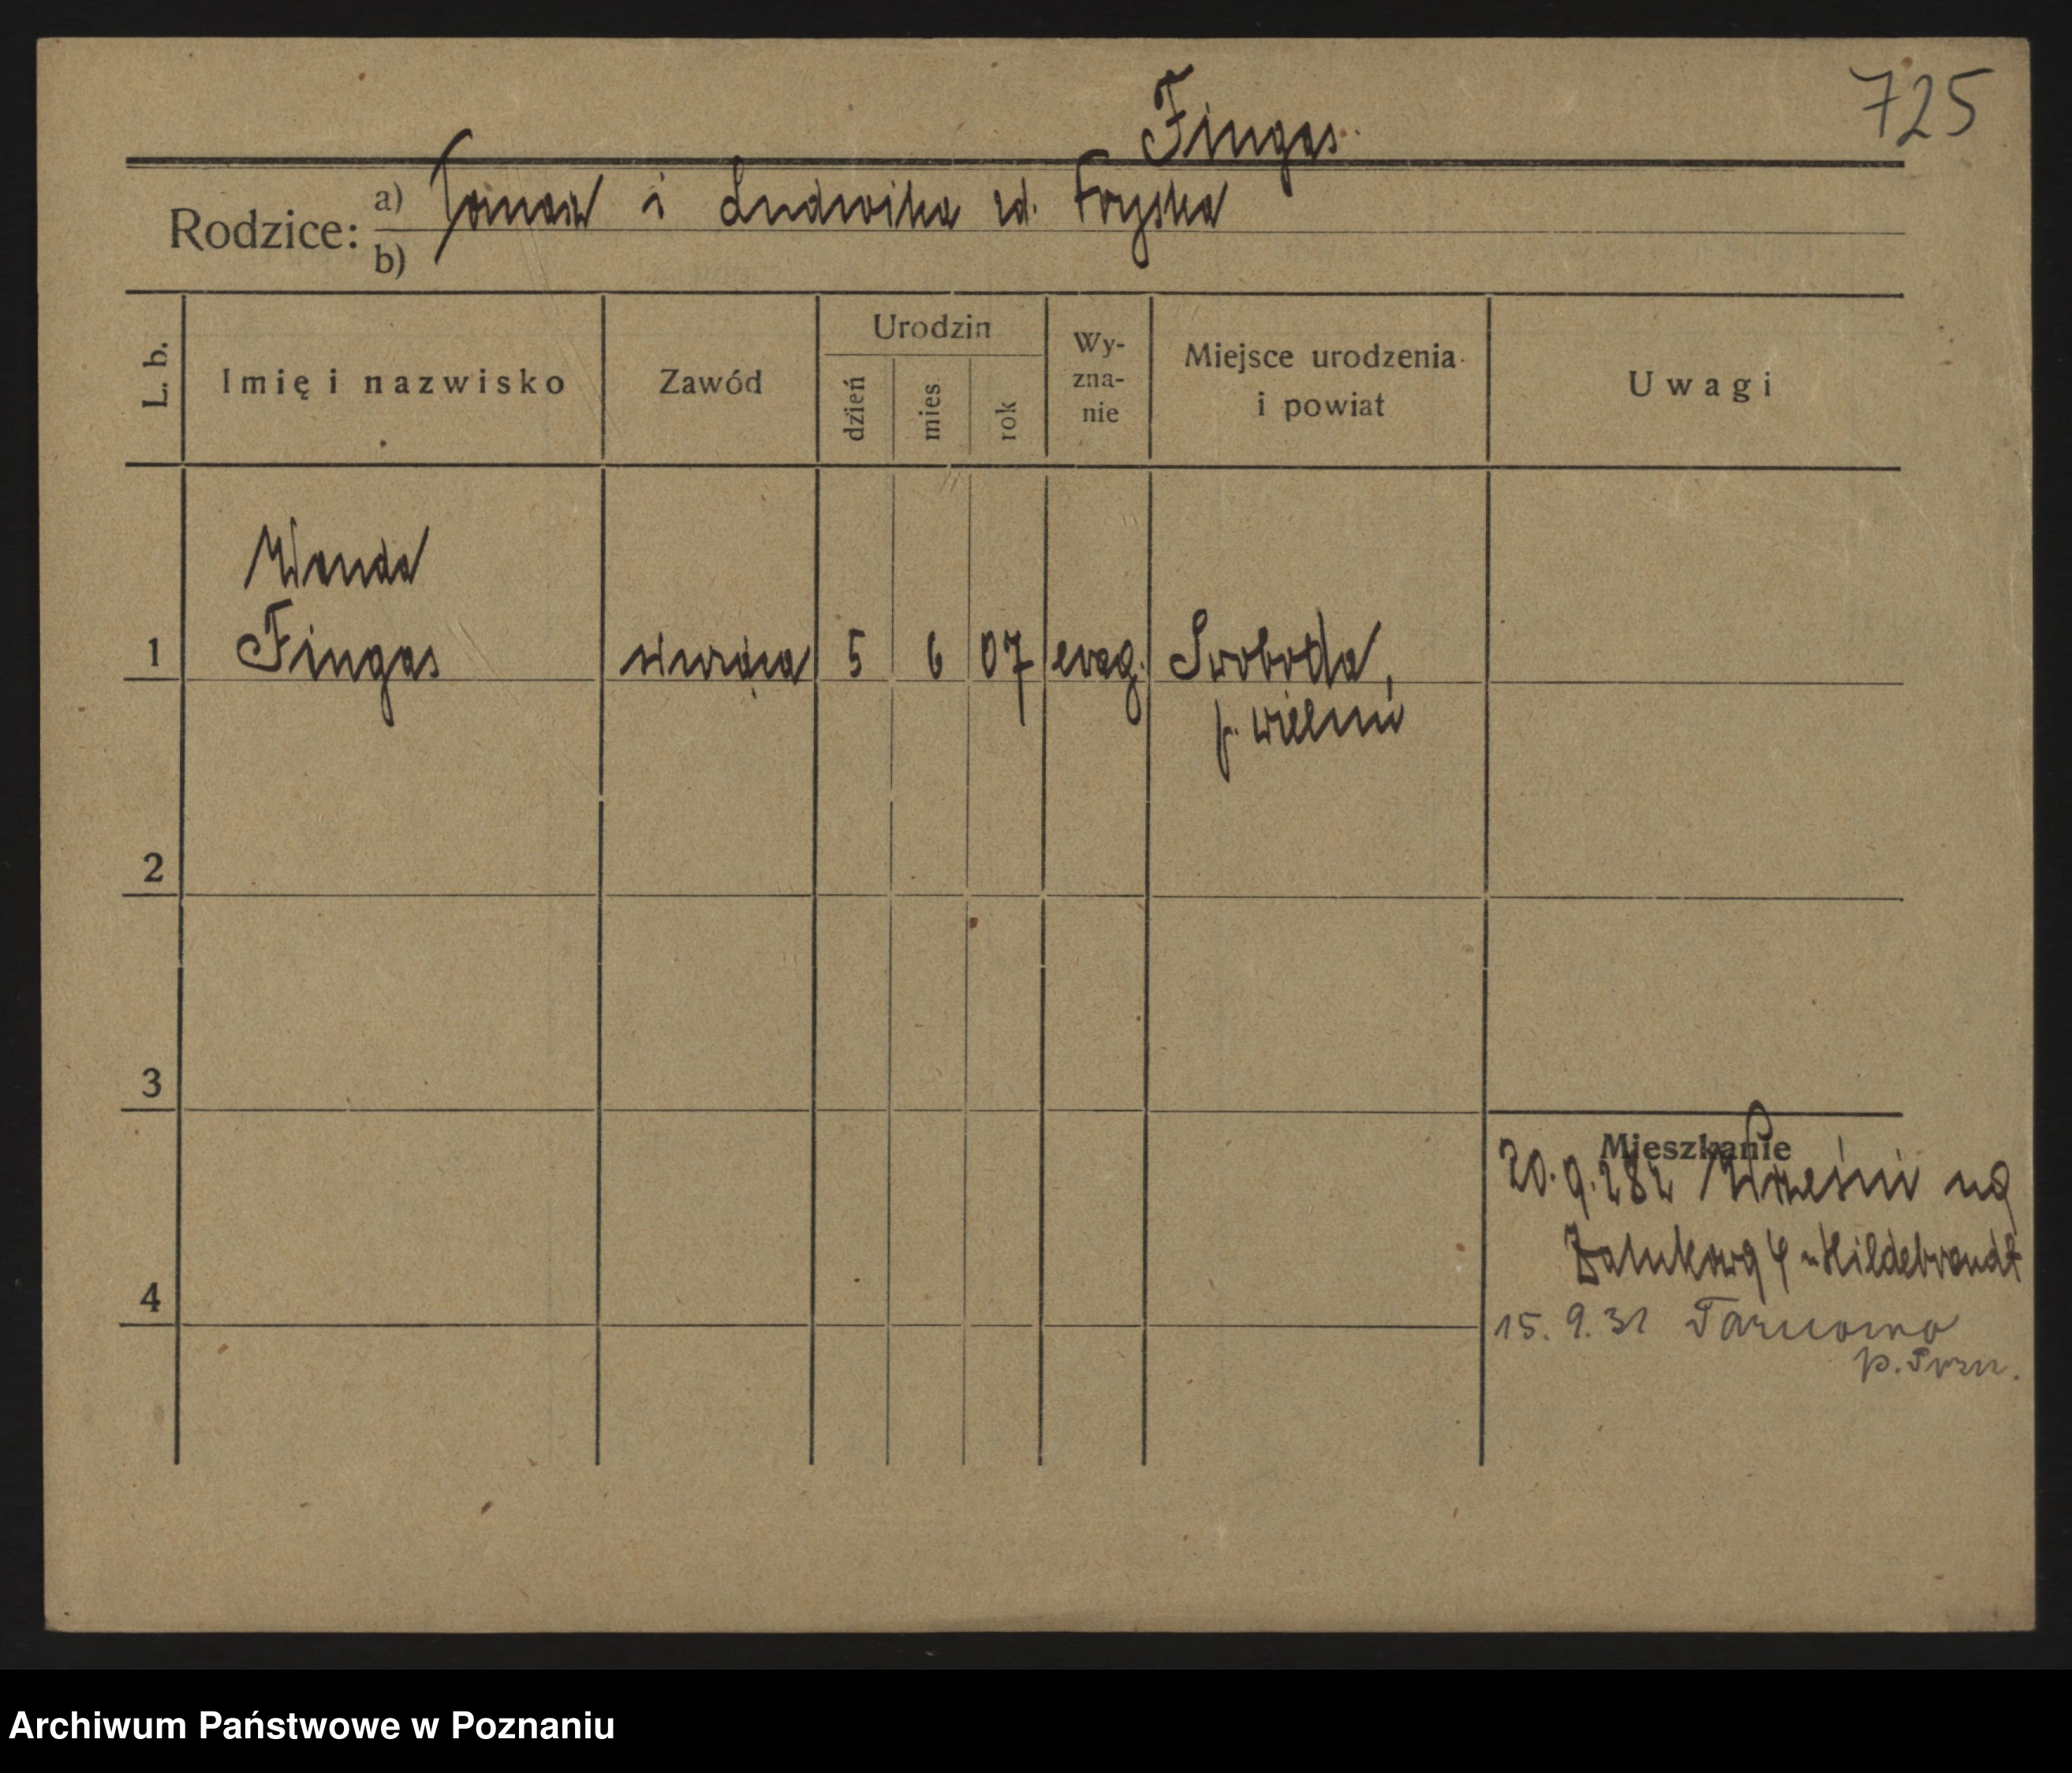 725
Fingas
Rodzice: a) Tomasz i Ludwika zd. Fryska
b)
L. b.
Imię i nazwisko
Zawód
Urodzin
dzień
mies.
rok
Wy-
zna-
nie
Miejsce urodzenia
i powiat
Uwagi
Wanda
1 Fingas służąca 5 6 07 ewag. Swoboda,
p. Wieluń
2
3
Mieszkanie
20. 9. 28 z Wrześni na
4 u Hildebrandt
4
15. 9. 31 Tarnowo
p. Pozn.
Archiwum Państwowe w Poznaniu